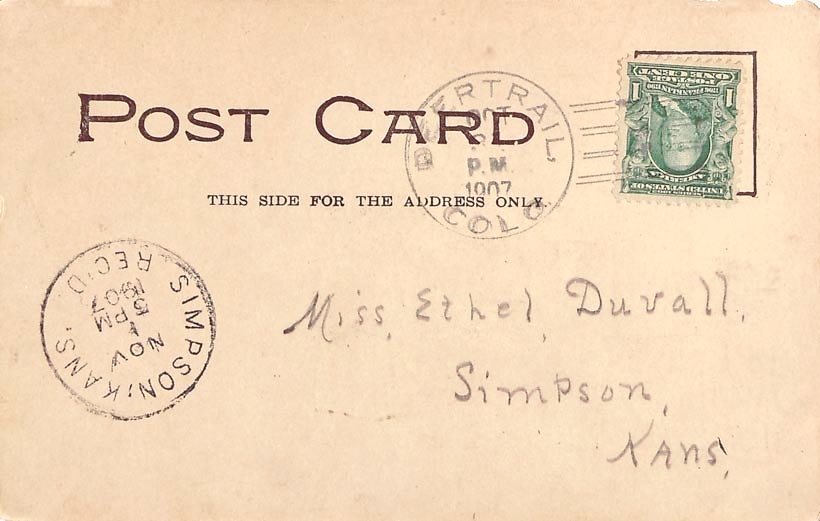 POST CARD
THIS SIDE FOR THE ADDRESS ONLY.
DEERTRAIL,
OCT
P.M.
1907
COLO.
ONE CENT
POSTAGE
1 1
FRANKLIN
AMERICA
UNITED STATES OF
SIMPSON, KANS.
NOV
1
5 PM
1907
REC'D
Miss, Ethel, Duvall,
Simpson,
Kans,